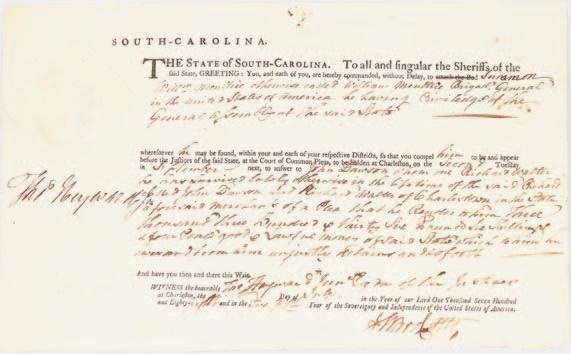 SOUTH-CAROLINA.
THE STATE OF SOUTH-CAROLINA. To all and singular the Sheriffs of the
said State, GREETING: You, and each of you, are hereby commanded, without Delay, to attach the Bod Summon
otherwise called William Brigadr General
in the United States of America he having Priviledge of the
General Assembly of the said State
wheresoever he may be found, within your and each of your respective Districts, so that you compel him to be and appear
before the Justices of the said State, at the Court of Common Pleas, to be holden at Charleston, on the Tuesday
in September next, to answer to John Dawson whom one Richard Walter
he survived late otherwise in the lifetime of the said Richard
called John Dawson and Richard Walter of Charleston in the State
said merchants of a Plea that he Render to him three
thousand three hundred & thirty six Pounds six Shillings
good & Lawful money of said State which to him he
owes and from him unjustly detains and so forth
And have you then and there this Writ.
WITNESS the honorable Tho Heyward Junr one of the Justices
at Charleston, the Day of July in the Year of our Lord One Thousand Seven Hundred
and Eighty and in the Year of the Sovereignty and Independence of the United States of America.